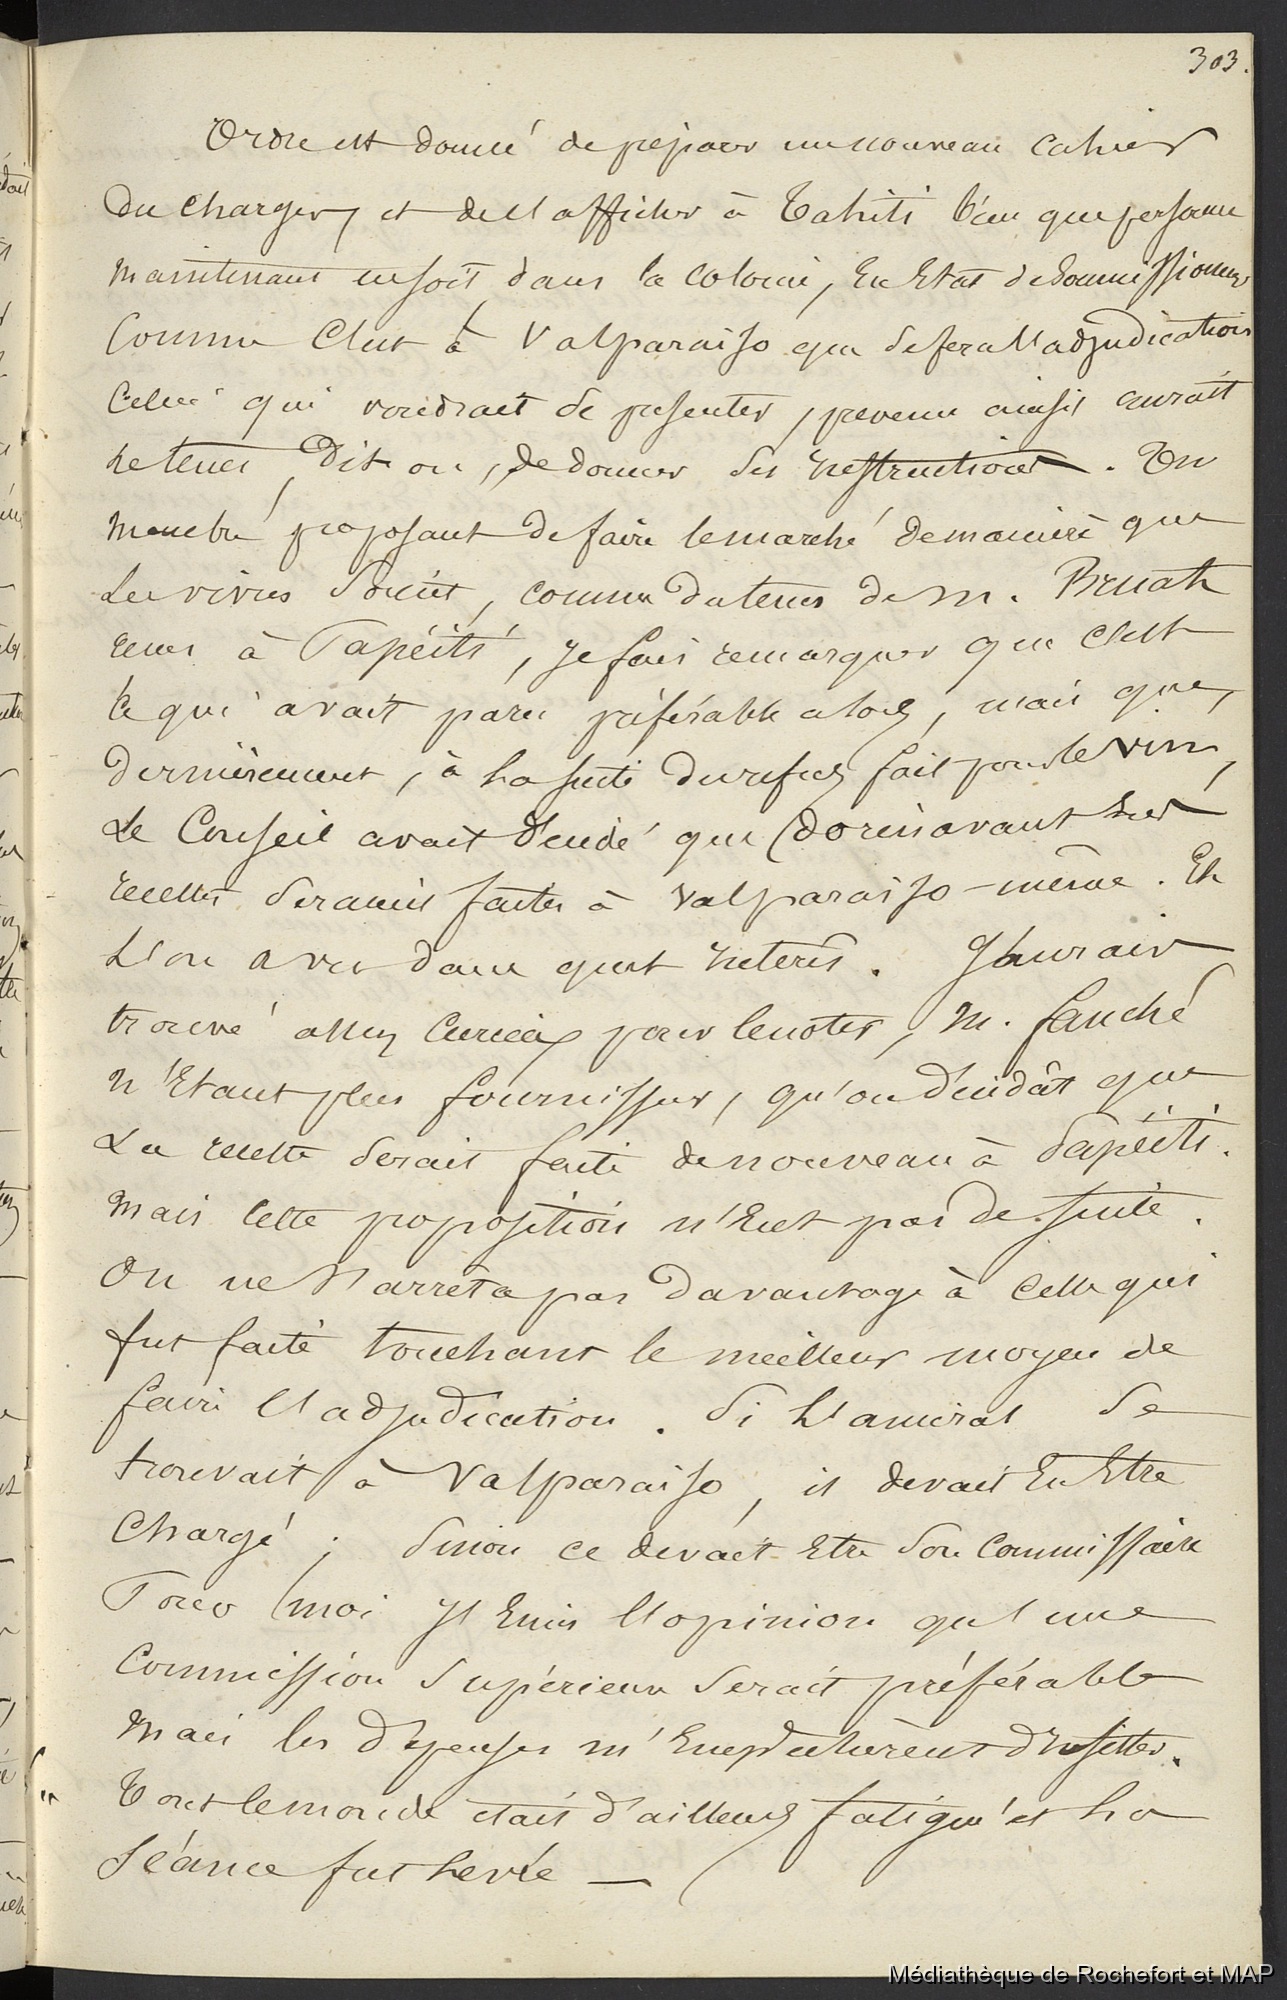 303.
Ordre est donné de préparer un nouveau cahier
du charges, et de l'afficher à Tahiti bien que personne
maintenant ne soit, dans la colonie, en Etat de soumissionner
Comme c'est à Valparaiso que se fera l'adjudication
Celui qui voudrait se presenter, prevenu ainsi aurait
le tems, dit on, de donner ses instructions. Un
membre proposant de faire le marché de manière que
Les vivres soient, comme du tems de m. Bruat
rendus à Papéiti, je fais remarquer que c'est
ce qui avait paru préférable alors, mais que,
dernièrement, à la suite du refus fait pour le vin,
Le Conseil avait décidé que dorénavant les
recettes seraient faites à Valparaiso-même. Et
L'on a vu dans quel intérêt. J'aurais
trouvé assez curieux pour le noter, M. fauché
n'Etant plus fournisseur, qu'on décidât que
La recette serait faite de nouveau à Papéiti.
Mais cette proposition n'Eut pas de suite.
On ne s'arrêta pas davantage à celle qui
fut faite touchant le meilleur moyen de
faire l'adjudication. Si l'amiral se
trouvait à Valparaiso, il devait en Etre
Chargé; sinon ce devait Etre son Commissaire
Pour moi j'Emis l'opinion qu'une
Commission supérieure serait préférable
Mais les dépenses m'Empêchèrent d'insister.
Tout le monde était d'ailleurs fatigué et la
Séance fut levée —
Médiathèque de Rochefort et MAP